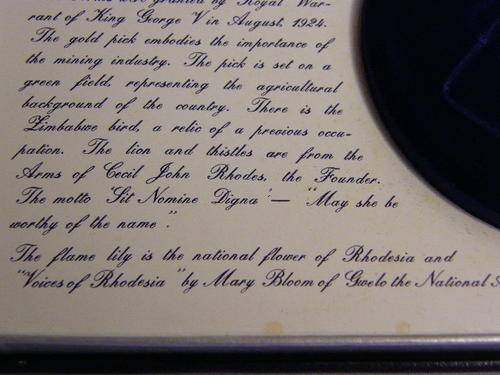 granted by Royal War-
rant of King George V in August, 1924.
The gold pick embodies the importance of
the mining industry. The pick is set on a
green field, representing the agricultural
background of the country. There is the
Zimbabwe bird, a relic of a previous occu-
pation. The lion and thistles are from the
Arms of Cecil John Rhodes, the Founder.
The motto 'Sit Nomine Digna' — "May she be
worthy of the name".
The flame lily is the national flower of Rhodesia and
"Voices of Rhodesia" by Mary Bloom of Gwelo the National